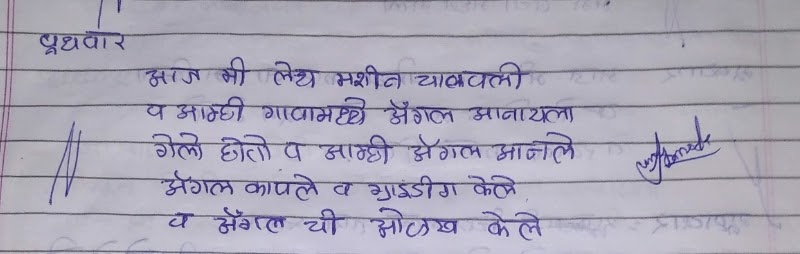 बुधवार
आज मी लेथ मशीन चालवली
व आम्ही गावामध्ये अँगल आनायला
गेलो होतो व आम्ही अँगल आनले
अँगल कापले व ग्राइडींग केले
व अँगल ची ओळख केले